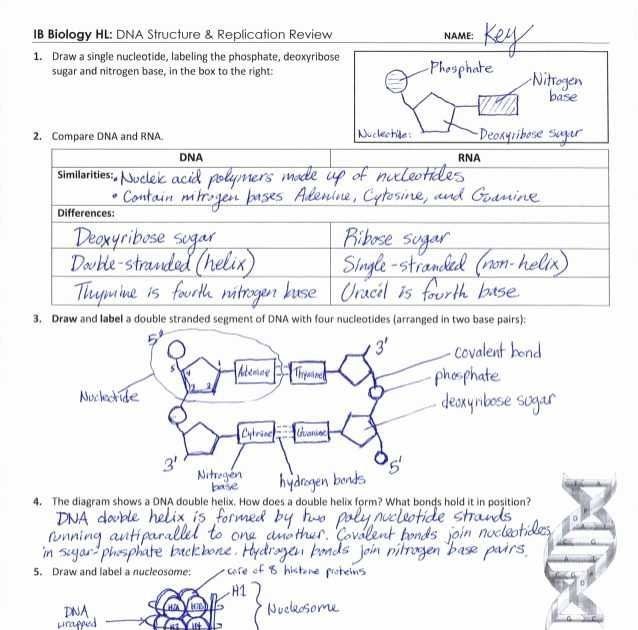 IB Biology HL: DNA Structure & Replication Review NAME: Key
1. Draw a single nucleotide, labeling the phosphate, deoxyribose
sugar and nitrogen base, in the box to the right:
Phosphate
Nitrogen
base
Nucleotide:
Deoxyribose sugar
2. Compare DNA and RNA.
DNA RNA
Similarities: • Nucleic acid polymers made up of nucleotides
• Contain nitrogen bases Adenine, Cytosine, and Guanine
Differences:
Deoxyribose sugar Ribose sugar
Double-stranded (helix) Single-stranded (non-helix)
Thymine is fourth nitrogen base Uracil is fourth base
3. Draw and label a double stranded segment of DNA with four nucleotides (arranged in two base pairs):
5' 3'
covalent bond
5 4 Adenine Thymine
phosphate
Nucleotide
deoxyribose sugar
Cytosine Guanine
3' 5'
Nitrogen
base
hydrogen bonds
4. The diagram shows a DNA double helix. How does a double helix form? What bonds hold it in position?
DNA double helix is formed by two polynucleotide strands
running antiparallel to one another. Covalent bonds join nucleotides
in sugar-phosphate backbone. Hydrogen bonds join nitrogen base pairs.
5. Draw and label a nucleosome:
core of 8 histone proteins
H1
DNA
wrapped
Nucleosome